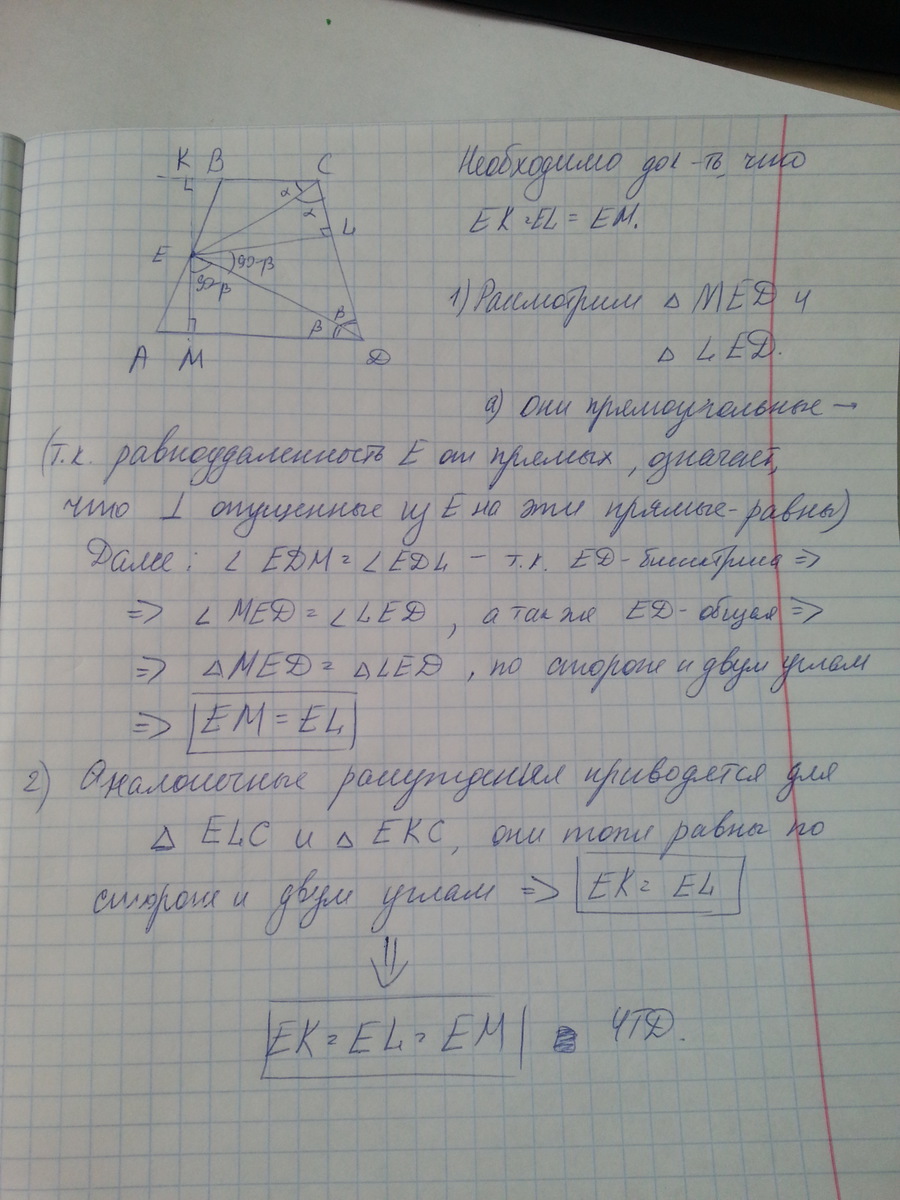 K B C
α
α
L
E
90-β
90-β
β
β
A M D
Необходимо док-ть, что
EK = EL = EM.
1) Рассмотрим △ MED и
△ LED.
а) они прямоугольные —
(т.к. равноудаленность E от прямых, означает,
что ⊥ опущенные из E на эти прямые - равны)
Далее: ∠ EDM = ∠ EDL - т.к. ED - биссектриса =>
=> ∠ MED = ∠ LED, а также ED - общая =>
=> △ MED = △ LED, по стороне и двум углам
=> EM = EL
2) Аналогичные рассуждения приводятся для
△ ELC и △ EKC, они тоже равны по
стороне и двум углам => EK = EL
⇓
EK = EL = EM ЧТД.